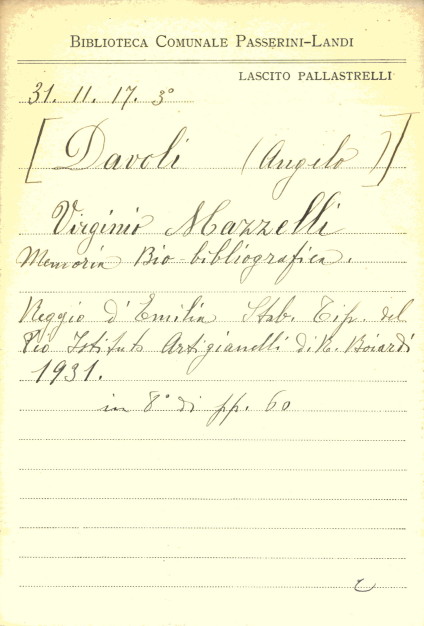 BIBLIOTECA COMUNALE PASSERINI-LANDI
LASCITO PALLASTRELLI
31. 11. 17. 3°
[Davoli (Angelo)]
Virginio Mazzelli
Memoria Bio-bibliografica.
Reggio d'Emilia Stab. Tip. del
Pio Istituto Artigianelli di R. Boiardi
1931.
in 8° di pp. 60